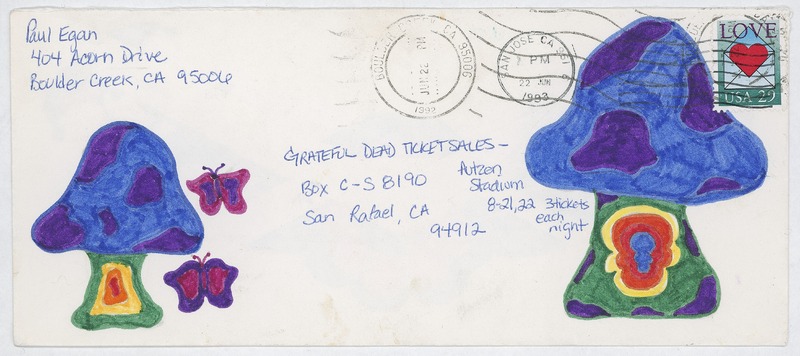 Paul Egan
404 Acorn Drive
Boulder Creek, CA 95006
BOULDER CREEK CA 95006
JUN 22 PM
1993
SAN JOSE CA
PM
22 JUN
1993
LOVE
USA 29
GRATEFUL DEAD TICKET SALES –
Box C-S 8190
San Rafael, CA
94912
Autzen
Stadium
8-21, 22 3 tickets
each
night